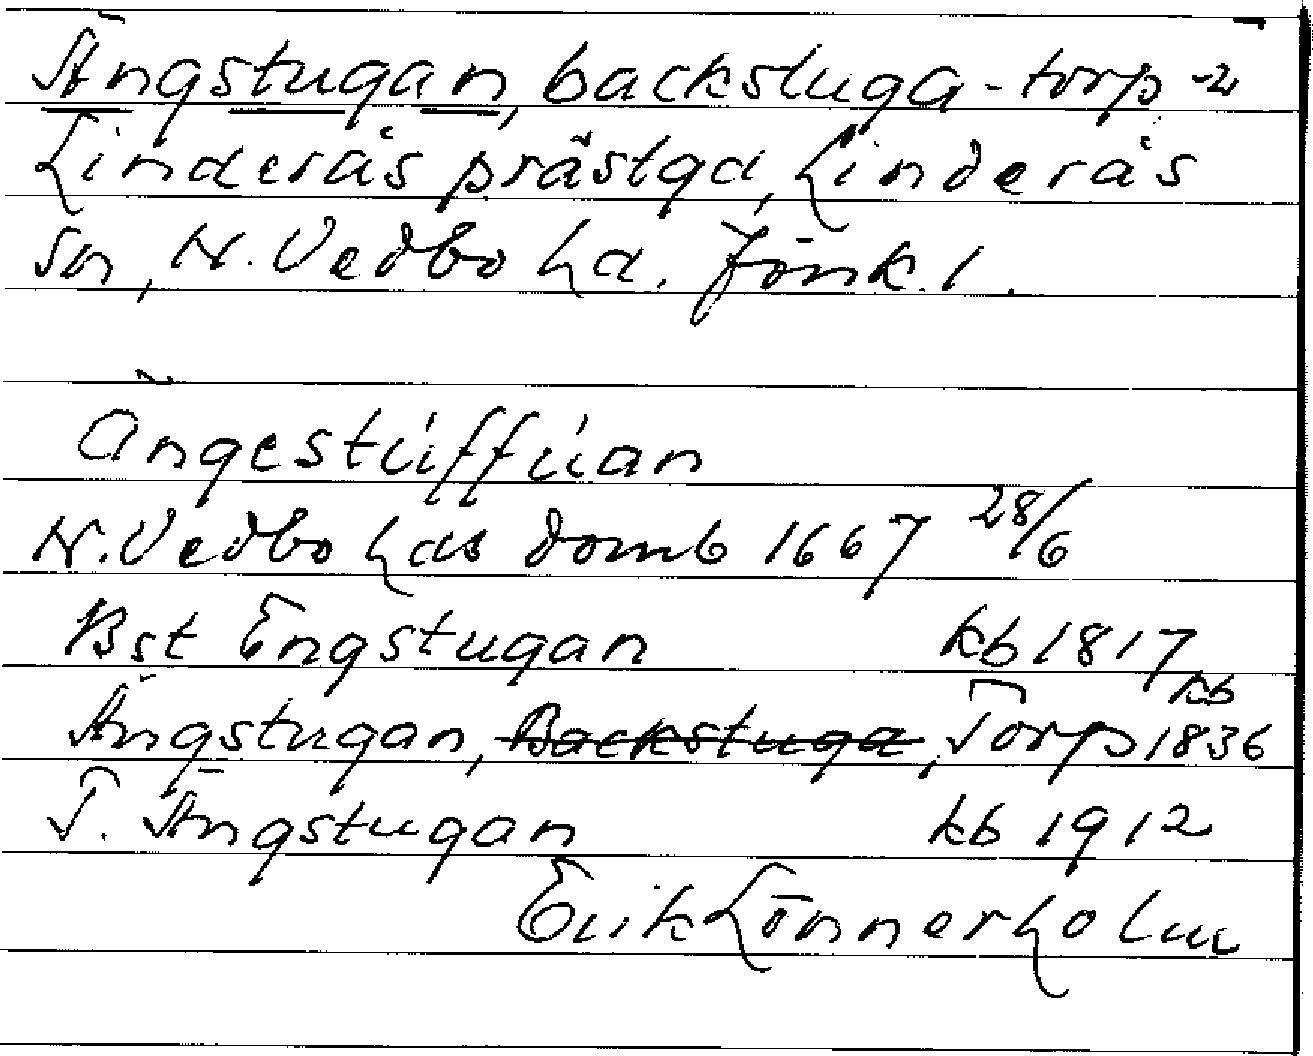 Ängstugan, backstuga-torp -2
Linderås prästgd, Linderås
sn, N. Vedbo hd. Jönk. l.
ängestúffúan
N. Vedbo hds domb 1667 28/6
Bst Engstugan kb 1817
Ängstugan, Backstuga, Torp kb 1836
T. Ängstugan kb 1912
Erik Lönnerholm